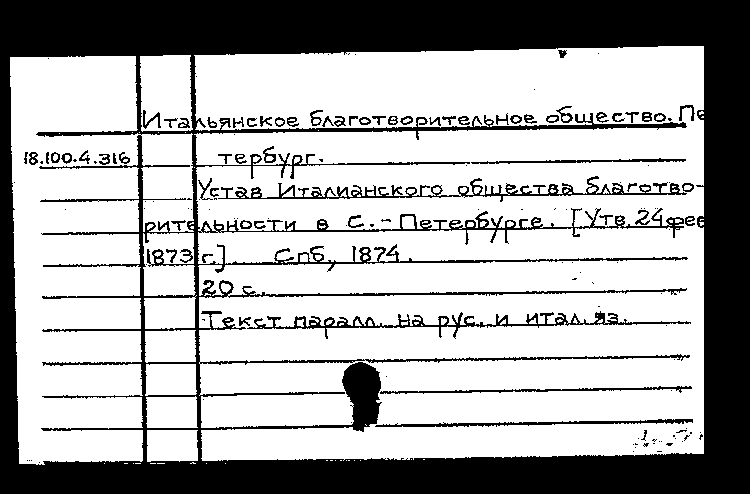 Итальянское благотворительное общество. Пе
18.100.4.316 тербург.
Устав Италианского общества благотво-
рительности в С.-Петербурге. [Утв. 24 фев
1873 г.]. Спб, 1874.
20 с.
Текст паралл. на рус. и итал. яз.